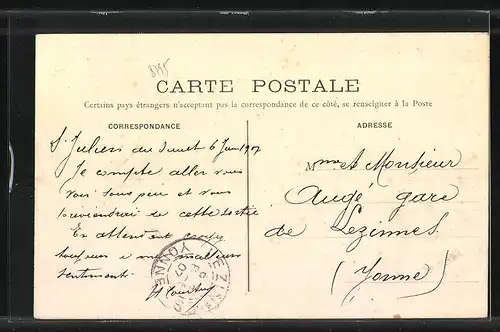 8795
CARTE POSTALE
Certains pays étrangers n'acceptant pas la correspondance de ce côté, se renseigner à la Poste
CORRESPONDANCE
ADRESSE
St Julien du Sault 6 Juin 1907
Je compte aller vous
voir sous peu et vous
de cette
En attendant croyez
toujours à mes meilleurs
sentiments
Mme et Monsieur
Augé gare
de Lezinnes
(Yonne)
LEZINNES
YONNE